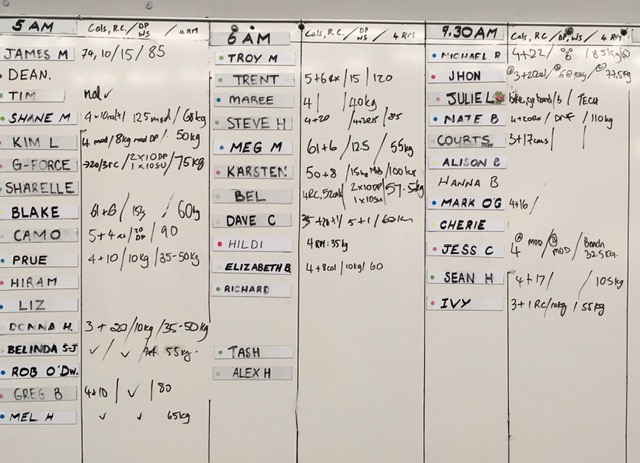 5 AM Cals, R.C. / DP WS / 4 RM
JAMES M 74, 10/15/85
DEAN.
TIM
SHANE M 125 mod / 60kg
KIM L 4 mod/8kg mod DP / 50kg
G-FORCE 2x10DP 1x10SU / 75kg
SHARELLE
BLAKE 60kg
CAMO 5+4 20 DP / 90
PRUE 4+10/10kg/35-50kg
HIRAM
LIZ
DONNA H. 3+20/10kg/35-50kg
BELINDA S-J ✓ / ✓ / 55kg.
ROB O'DW.
GREG B 4+10 / ✓ / 80
MEL H ✓ ✓ 65kg
6 AM Cals, R.C. / DP WS / 4 RM
TROY M
TRENT 5+6 RX / 15 / 120
MAREE 4 / 40kg
STEVE H 4+20 / 85
MEG M 61+6 / 12.5 / 55kg
KARSTEN 50+8 / 100kg
BEL 2x10DP 1x10SU / 57.5kg
DAVE C 5+1 / 60kg
HILDI 4RM: 35kg
ELIZABETH B 4+8cal/10kg/60
RICHARD
TASH
ALEX H
9.30 AM Cals, R.C. / DP, WS / 4 RM
MICHAEL R 4+22/ 85kg
JHON 77.5kg
JULIE L / TECH
NATE B / 110kg
COURTS. 3+17
ALISON B
HANNA B
MARK O'G 4+16/
CHERIE
JESS C 4 MOD / MOD / Bench 32.5kg.
SEAN H 4+17 / / 105kg
IVY 3+1RC/10kg / 55kg